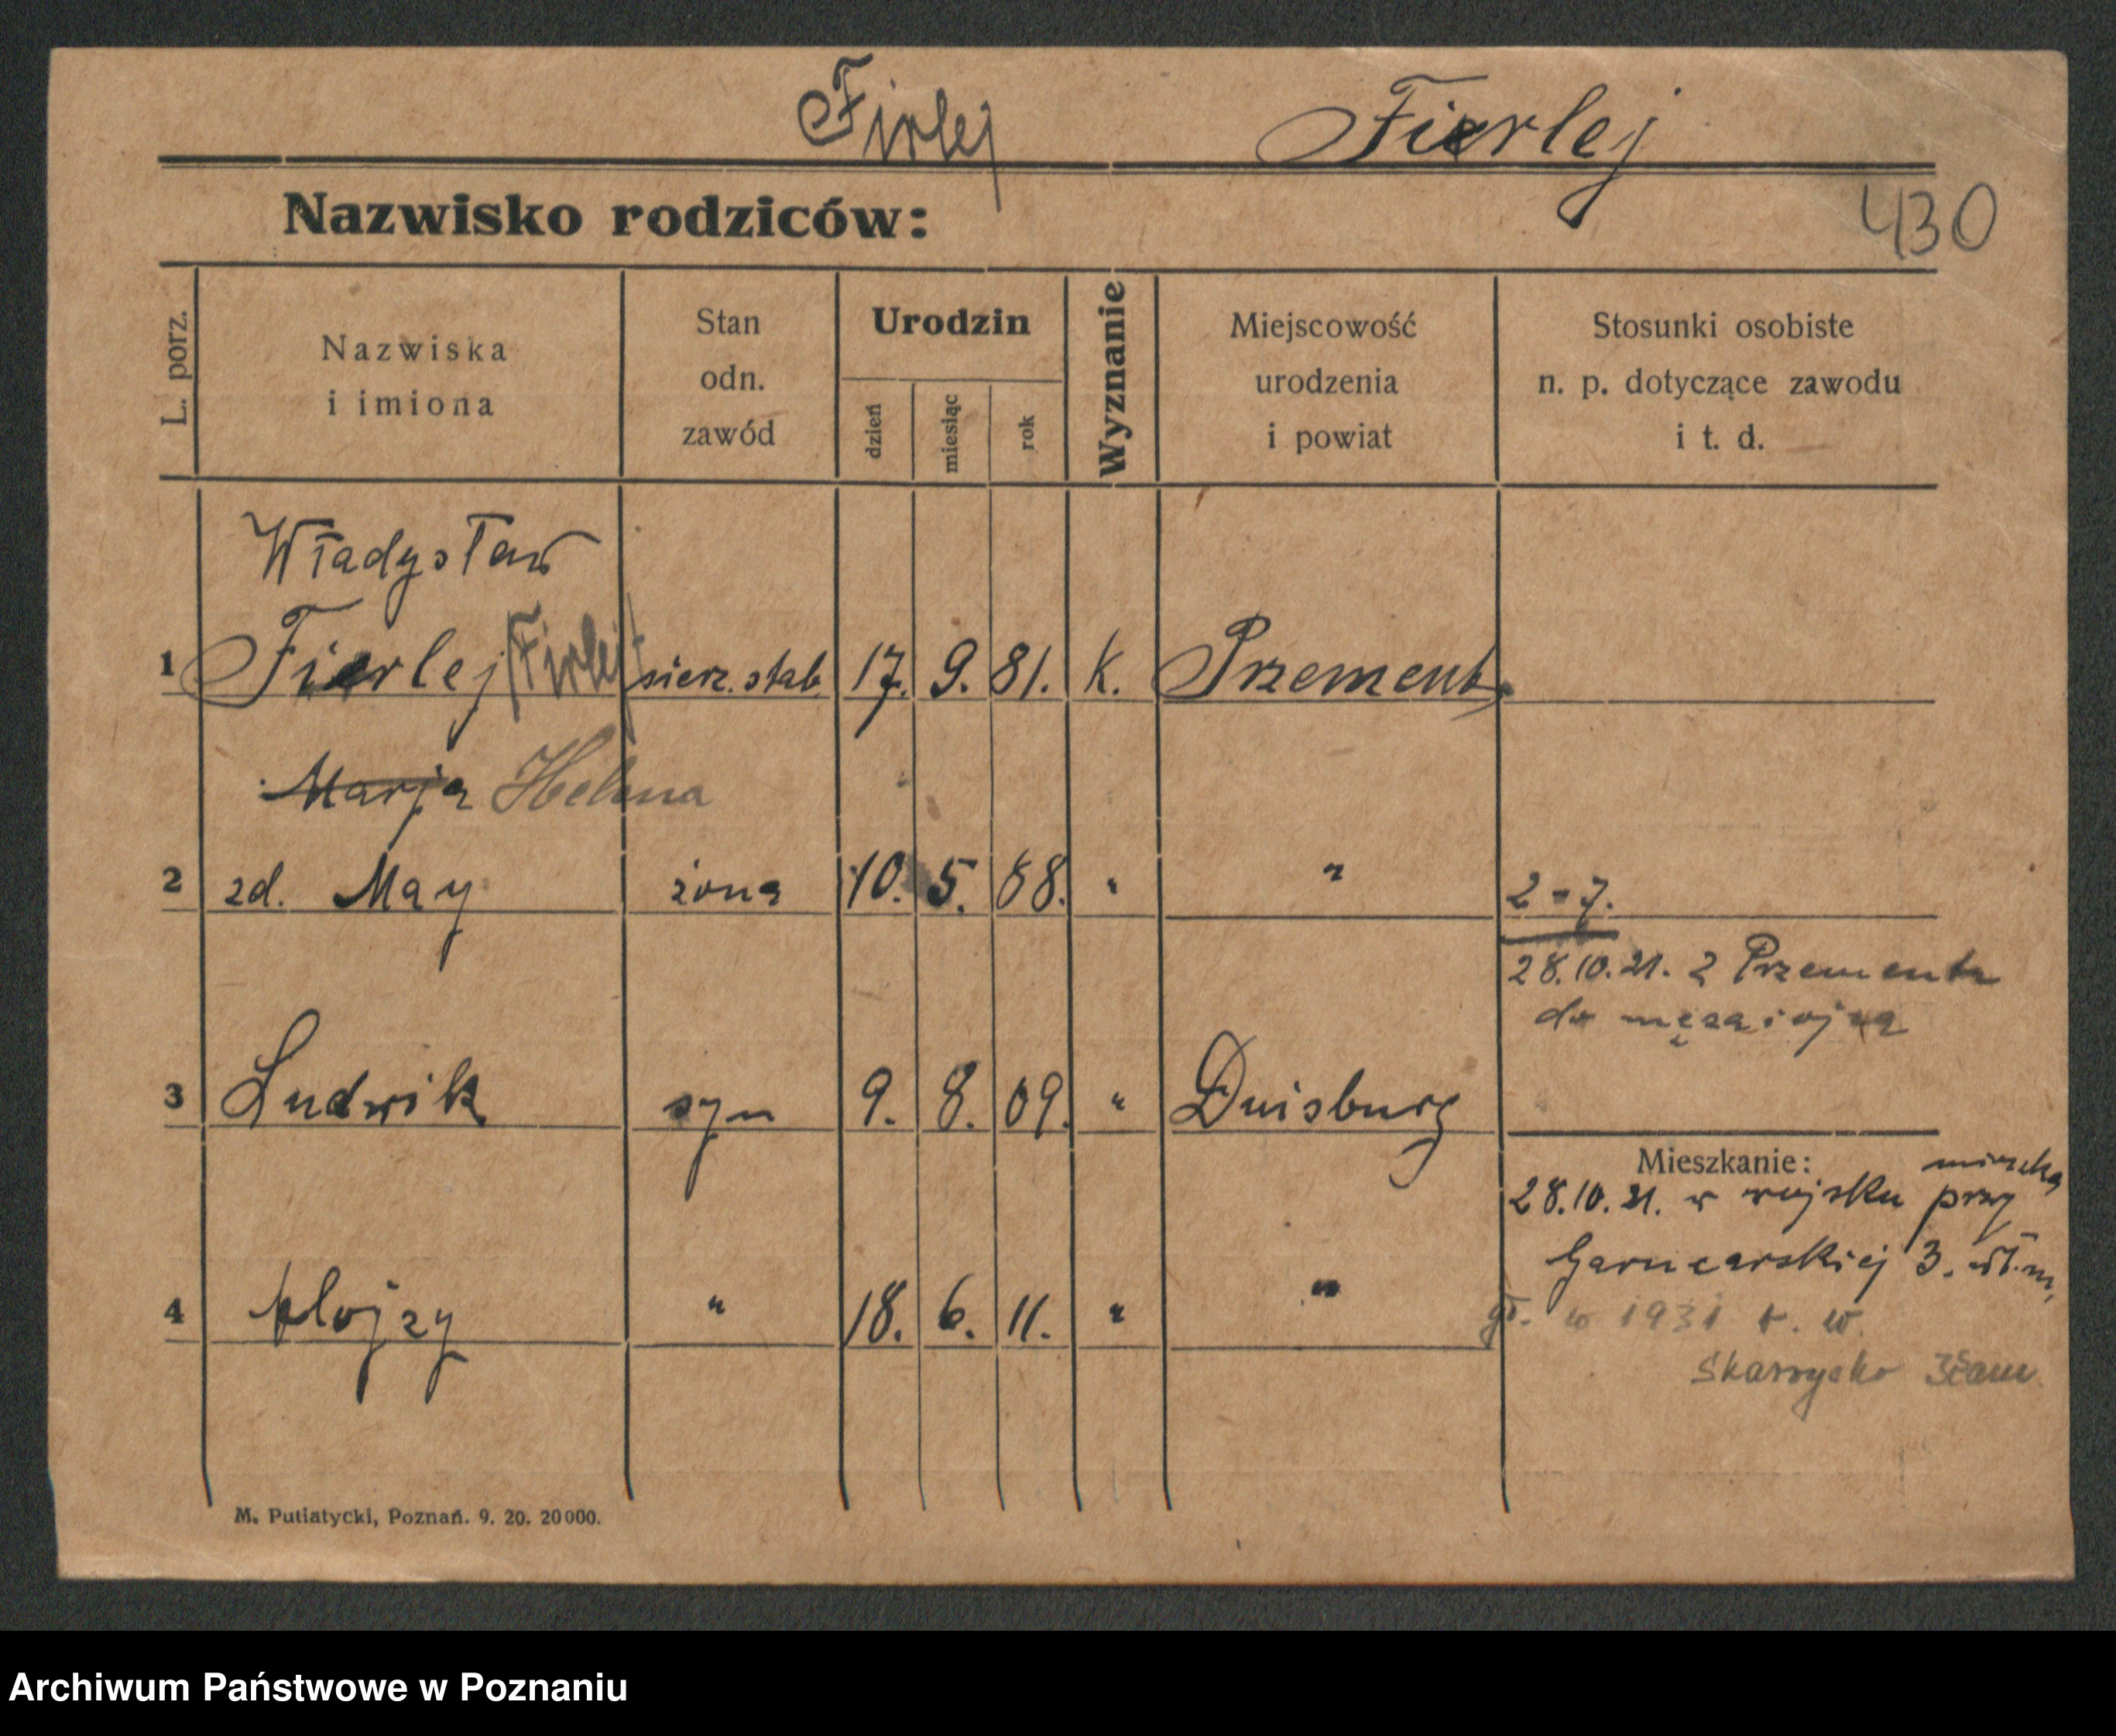 Firlej Fierlej
430
Nazwisko rodziców:
L. porz.
Nazwiska
i imiona
Stan
odn.
zawód
Urodzin
dzień
miesiąc
rok
Wyznanie
Miejscowość
urodzenia
i powiat
Stosunki osobiste
n. p. dotyczące zawodu
i t. d.
Władysław
1 Fierlej /Firlej/ sierz. stab. 17. 9. 81. k. Przement
Marja Helena
2 zd. May żona 10. 5. 88. " " 2-7.
28.10.21. z Przementu
do męża i ojca
3 Ludwik syn 9. 8. 09. " Duisburg
Mieszkanie: mieszka
28.10.21. w wojsku przy
Garncarskiej 3.
4 Alojzy " 18. 6. 11. " "
w 1931 r. w
Skarżysko
M. Putiatycki, Poznań. 9. 20. 20000.
Archiwum Państwowe w Poznaniu